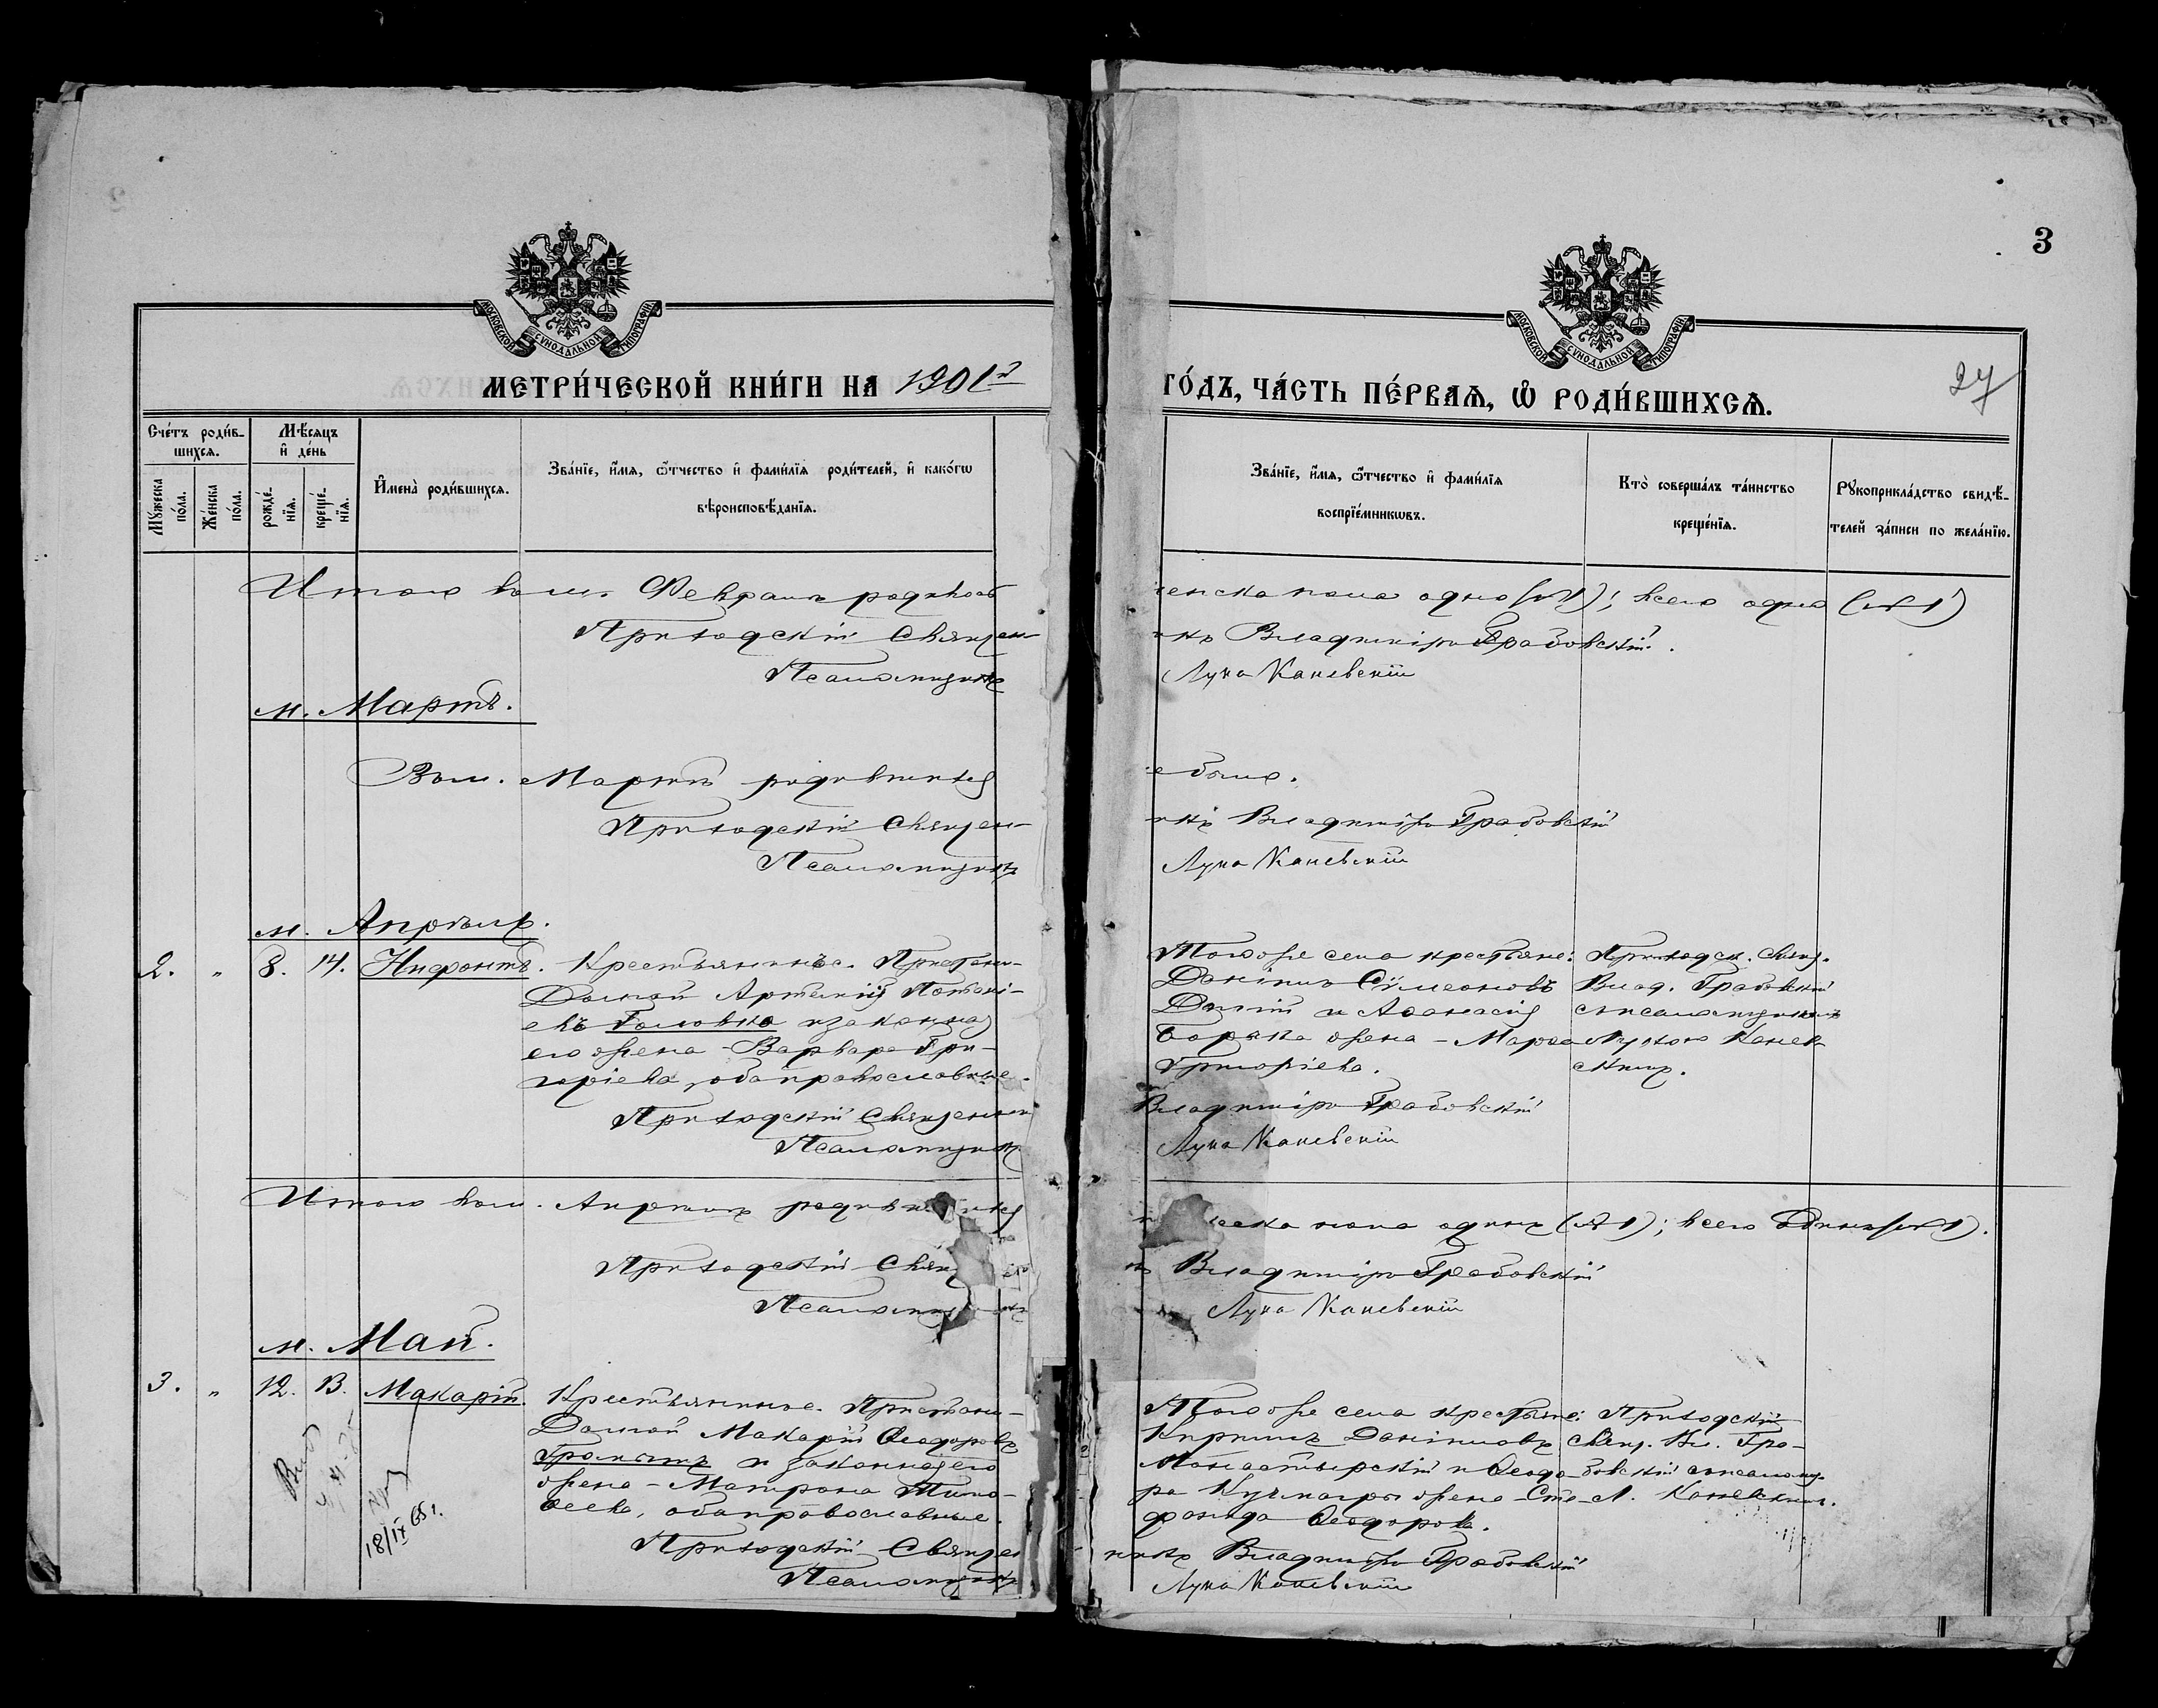 3
27
МОСКОВСКОЙ СУНОДАЛЬНОЙ ТИПОГРАФІИ
МОСКОВСКОЙ СУНОДАЛЬНОЙ ТИПОГРАФІИ
МЕТРИ́ЧЕСКОЙ КНИ́ГИ НА 1901 г
ГО́ДЪ, ЧА́СТЬ ПЕ́РВАѦ, Ѡ҆ РОДИ́ВШИХСѦ.
Сче́тъ роди́в-
шихсѧ.
Мꙋ́жеска по́ла.
Же́нска по́ла.
Мѣ́сѧцъ
и҆ де́нь
рожде́-нїѧ.
креще́-нїѧ.
И҆мена̀ роди́вшихсѧ.
Зва́нїе, и҆́мѧ, ѻ҆́тчество и҆ фами́лїѧ роди́телей, и҆ како́гѡ
вѣроисповѣ́данїѧ.
Зва́нїе, и҆́мѧ, ѻ҆́тчество и҆ фами́лїѧ
воспрїе́мникѡвъ.
Кто̀ соверша́лъ та́инство
креще́нїѧ.
Рꙋкоприкла́дство свидѣ́-
телей за́писи по жела́нїю.
Итого въ м. Февралѣ родилось
женска пола одно (№1); всего одно (№1)
Приходскій Священ-
никъ Владиміръ Грабовскій.
Псаломщикъ
Лука Каневскій
м. Мартъ.
Въ м. Мартѣ родившихся
не было.
Приходскій Священ-
никъ Владиміръ Грабовскій
Псаломщикъ
Лука Каневскій
м. Апрѣль.
2. " 8. 14. Нифонтъ.
Крестьянинъ с.
Долгой Артемій Потапі-
евъ Головко и законная
его жена - Варвара Гри-
горіева, оба православные.
Того же села крестьяне:
Даніилъ Сѵмеоновъ
Долгій и Аѳанасія
жена - Марѳа
Григоріева.
Приходск. Свящ.
Влад. Грабовскій
съ псаломщикомъ
Лукою Канев-
скимъ.
Приходскій Священникъ
Владиміръ Грабовскій
Псаломщикъ
Лука Каневскій
Итого въ м. Апрѣлѣ родившихся
пола одинъ (№1); всего одинъ (№1).
Приходскій Свящ
Владиміръ Грабовскій
Псаломщикъ
Лука Каневскій
м. Май.
3. " 12. 13. Макарій.
Крестьянинъ с.
Долгой Макарій Ѳеодоровъ
и законная его
жена - Матрона Тимо-
ѳеева, оба православные.
Того же села крестьяне:
Кириллъ Даніиловъ
Монастырскій и Ѳеодо-
ра жена - Сте-
фанида Ѳеодорова.
Приходскій
Свящ. Вл. Гра-
бовскій съ псаломщ.
Л. Каневскимъ.
18/IX 65 г.
Приходскій Священ
никъ Владиміръ Грабовскій
Псаломщикъ
Лука Каневскій